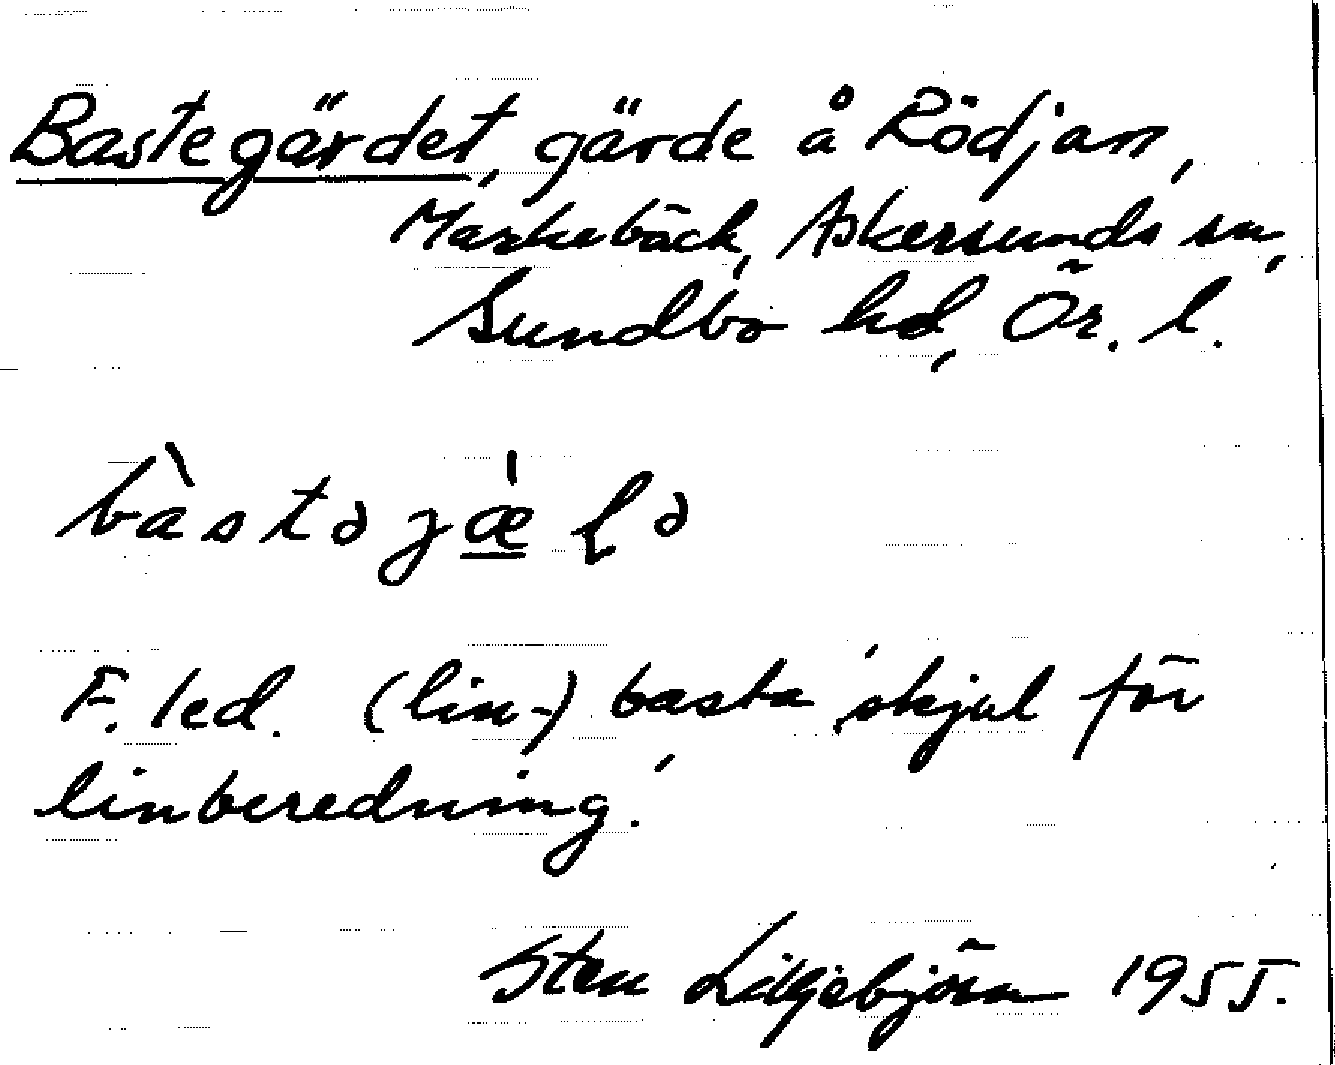 Bastegärdet, gärde å Rödjan,
Markebäck, Askersunds sn,
Sundbo hd, Ör. l.
bàstəjæ̲̀ɽə
F. led. (lin-) basta 'skjul för
linberedning.'
Sten Liljebjörn 1955.